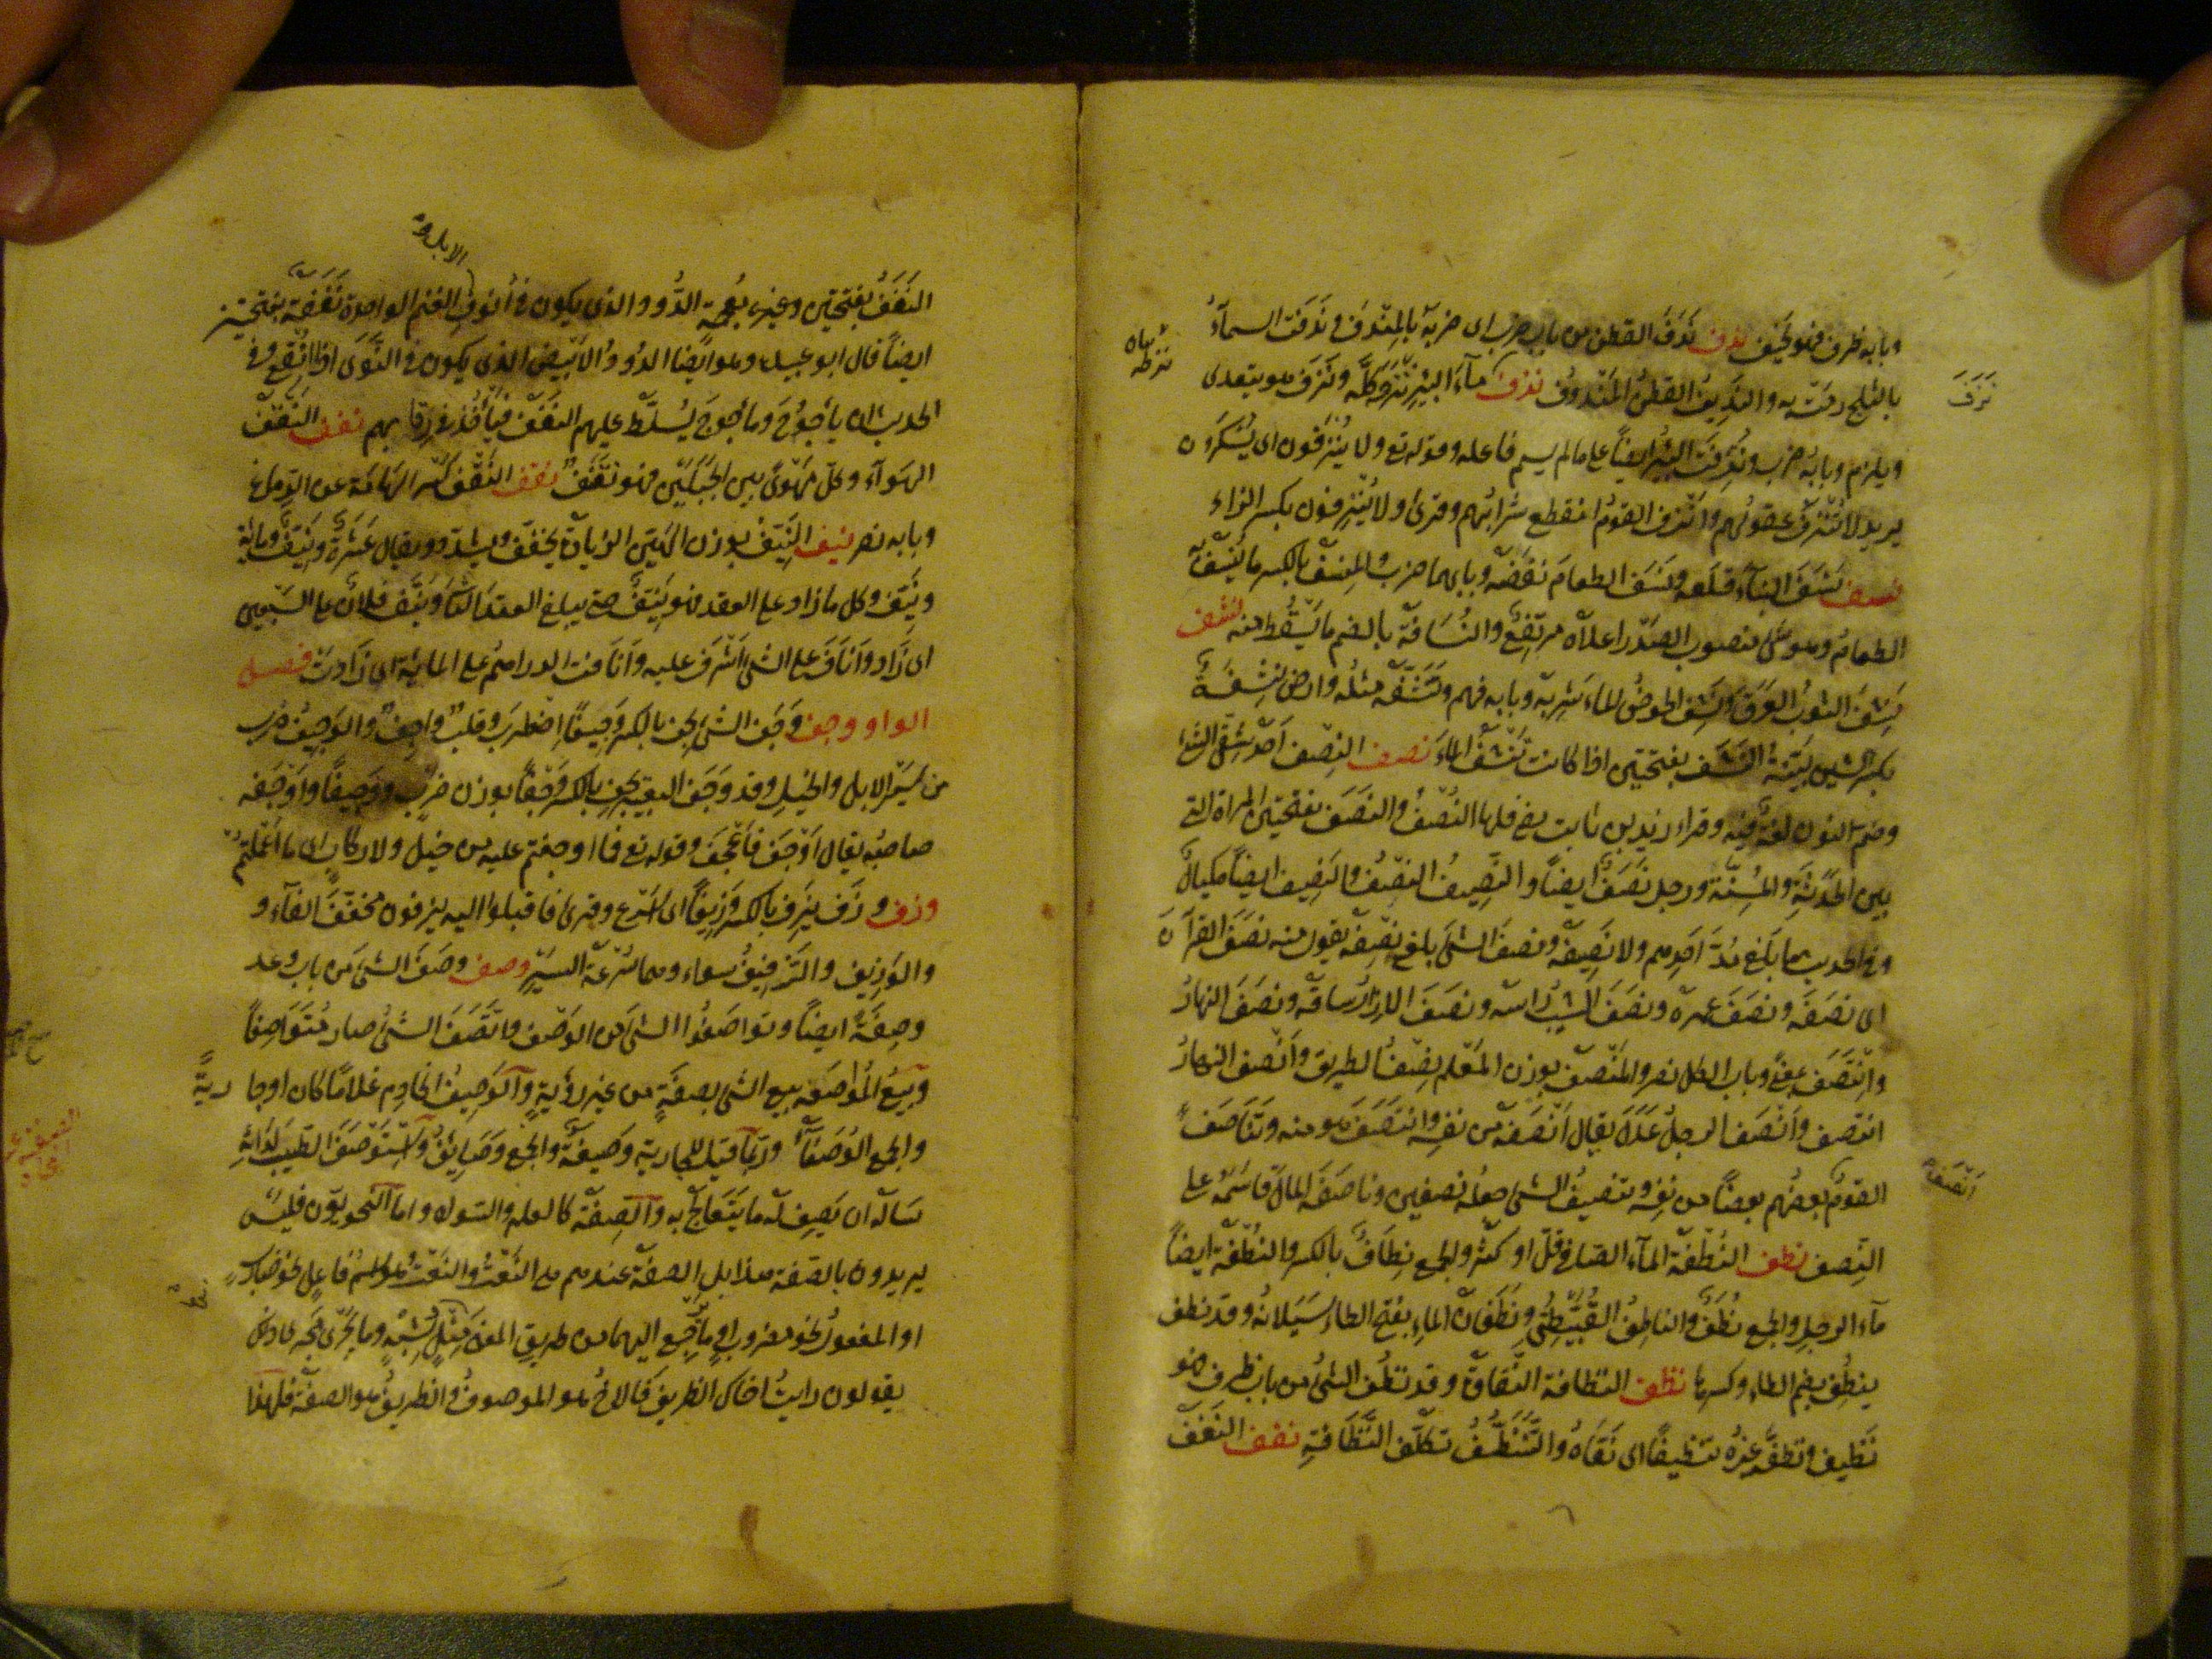 وبابه ظرف فهو نحيف ندف نَدَفَ القطن من باب ضرب اى ضربه بالمِنْدَف و نَدَفَت السمآءُ
بالثلج رمَتْ به والنَدِيفُ القطنُ المَنْدوُف نزف مآءَ البِئرِ نَزَحَهُ كلَّه ونَزَفَ هو يتعدى
نَزَفَ
ويلزم وبابُه ضرب ونُزِفَتْ البِئرُ ايضاً على مالم يسم فاعله وقوله تع ولا يُنْزَفون اى يَسْكَرون
يريد لا تُنْزَفُ عقولُهم وأَنْزَف القومُ انقطع شرابُهم وقرئ ولا يُنْزِفون بكسر الزاء
نسف نَسَفَ البنآءَ قلَعه ونَسَفَ الطعامَ نفَضَه وبابهما ضرب والمِنْسَفُ بالكسر ما يُنْسَفُ به
الطعامُ وهو شئ منصوب الصَدْر اعلاه مرتَفِعٌ والنُسَافَة بالضم ما يَسْقُط منه نشف
نَشِفَ الثوبُ العَرَقَ ونَشِفَ الحوضُ الماءَ شَرِبَه وبابه فهم وتَنَشَّفَه مثلُه وارض نَشِفَةٌ
بكسر الشين بيّنةُ النَشَف بفتحتين اذا كانت تَنْشَفُ الماءَ نصف النِصْف احد شِقَّى الشئ
وضم النون لغة فيه وقراء زيد بن ثابت رضى فلها النُصْفُ والنَصَفُ بفتحتين المراة التى
بين الحَدَثَةِ والمُسِنّة ورجل نَصَفٌ ايضاً والنَّصِيفُ النِصْفُ والنَصِيف ايضاً مكيالٌ
وفى الحديث ما بلَغ مُدَّ احدِهم ولا نَصِيفَه ونصَفَ الشئَ بلغ نِصْفَه يقول منه نصَفَ القرآنَ
اى نصَفَه ونصَفَ عمرَه ونصَفَ الشيبُ راسَه ونصَفَ الازارُ ساقَه ونصَفَ النهارُ
وانْتَصَفَ بمعنًى وباب الكل نصر والمَنْصَف بوزن المَعْلَم نِصْفُ الطريق وأَنْصف النهارُ
انتصف وأَنْصَفَ الرجلُ عَدَلَ يقال أَنْصَفَه من نفسه وانتَصَفَ هو منه وتَنَاصَفَ
القومُ بعضُهم بعضاً من نفسه وتنصيفُ الشئ جعلُه نصفين وناصَفَه المالَ قاسَمَه على
النِصف نطف النُطْفَة المآء الصافى قلّ او كثر والجمع نِطَافٌ بالكسر والنُطْفَة ايضاً
مآء الرجل والجمع نُطَفٌ والناطِفُ القُبَّيْطِىُّ ونَطَفَانُ الماءِ بفتح الطاء سَيَلانُه وقد نطف
ينطُف بضم الطاء وكسرها نظف النظافة النَّقَاوَة وقد نظُف الشئُ من باب ظرف فهو
نَظِيف ونظَّفَه غيره تنظيفاً اى نَقَّاهُ والتَّنَظُّفُ تكلُّف النَّظَافَةِ نغف النَغَف
النَغَفُ بفتحتين وغين معجمة الدُّود الذى يكون فى أُنوف الابل والغنم الواحدة نَغَفَة بفتحتين
ايضاً قال ابو عبيد وهو ايضا الدُود الابيض الذى يكون فى النَّوَى اذا أُنْقِعَ وفى
الحديث ان يأجُوجَ ومأجوجَ يُسلَّط عليهم النَغَف فيأخُذ فى رِقابهم نفف النَّفْنَفُ
الهَوآء وكلّ مَهْوًى بين الجَبَلَيْن فهو نَفْنَفٌ نقف النَقْفُ كَسْر الهَامَة عن الدماغ
وبابه نصر نيف النَيِّفُ بوزن الهَيّن الزيادَة يخفّف ويشدّد ويقال عَشَرَةٌ ونَيِّفٌ ومائة
ونَيِّف وكل ما زاد على العقد فهو نَيِّفٌ حتى يبلغ العقد الثانى ونيَّف فلانٌ على السَبْعين
اى زَاد وأنَافَ على الشئ أَشْرَفَ عليه وأنَافت الدراهمُ على المائة اى زَادَت فصل
الواو وجف وَجَفَ الشئُ يجِف بالكسر وَجِيفاً اضطرَب وقلبٌ واجِفٌ والوَجِيفُ ضَرب
من سَيْر الابل والخيل وقد وَجَفَ البعيرُ يجِف بالكسر وَجْفاً بوزن ضرْب ووَجِيفاً وأَوْجَفه
صاحبُه يقال أَوْجَفَ فأَعْجَفَ وقوله تع فما اوجفتم عليه من خيل ولا ركاب اى ما أَعْمَلْتُم
وزف وزَف يَزِف بالكسر وَزِيفاً اى اسْرَع وقرئ فاقبلوا اليه يزفون مخفَّفَ الفآء و
والوَزِيف والزَفِيفُ سواء وهما سُرْعَة السَيْر وصف وصَفَ الشئَ من باب وعد
وصِفَةً ايضاً وتواصَفُوا الشئَ من الوَصْف واتَّصَفَ الشئُ صار مُتَوَاصَفاً
وبَيعُ المُوَاصَفَة بيع الشئ بصفَةٍ من غير رؤيةٍ والوَصِيفُ الخادِم غلامًا كان اوجارية
والجمع الوُصَفآءُ وربّما قيل للجارية وَصِيفَةٌ والجمع وَصَائِفُ واسْتَوْصَفَ الطبيبَ لدائِه
سَاله ان يَصِف له ما يَتَعَالَجُ به والصِفَة كالعلم والسَواد واما النحويّون فليس
يريدون بالصفة هذا بل الصفة عندهم هى النَعْتُ والنَعْتُ هو اسم فاعِل نحو ضارب
او المفعول نحو مضروب او ما يَرجع اليهما من طريق المعنى كمِثْلٍ وشِبْهٍ وما يَجْرى مَجْرى ذلك
يقولون رايتُ اخاك الظريفَ فالاخُ هو الموصوفُ والظريفُ هو الصفة فلهذا